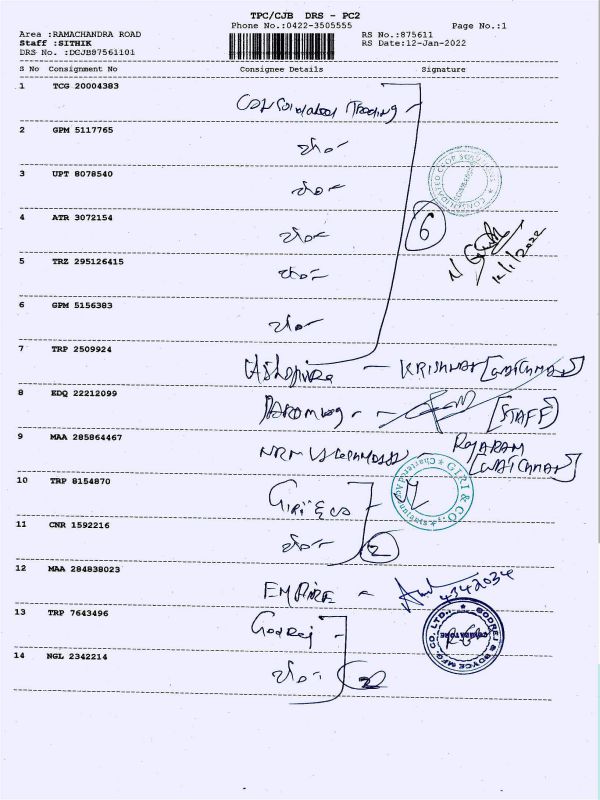 TPC/CJB DRS - PC2
Phone No.:0422-3505555
Page No.:1
Area :RAMACHANDRA ROAD
RS No.:875611
Staff :SITHIK
RS Date:12-Jan-2022
DRS No. :DCJB87561101
S No Consignment No Consignee Details Signature
1 TCG 20004383
Consolidated Trading -
2 GPM 5117765
3 UPT 8078540
4 ATR 3072154
6
12/1/2022
5 TRZ 295126415
6 GPM 5156383
7 TRP 2509924
- KRISHNAN [WATCHMAN]
8 EDQ 22212099
[STAFF]
9 MAA 285864467
RAJARAM
[WATCHMAN]
10 TRP 8154870
Giri & Co
GIRI & CO
Chartered Accountants
11 CNR 1592216
2
12 MAA 284838023
EMPIRE -
4342034
13 TRP 7643496
Godrej -
GODREJ & BOYCE MFG. CO. LTD.
COIMBATORE
14 NGL 2342214
2